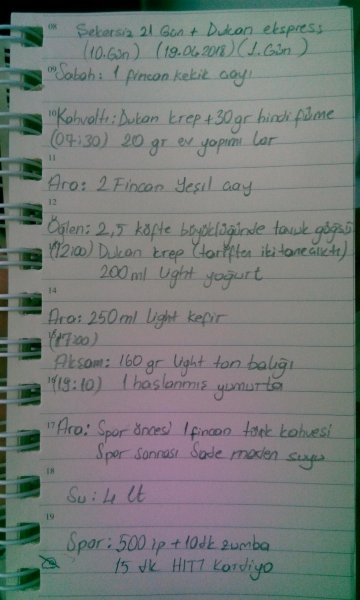 08 Şekersiz 21 Gün + Dukan ekspress
(10.Gün) (19.06.2018) (1.Gün)
09 Sabah: 1 fincan kekik çayı
10 Kahvaltı: Dukan krep + 30 gr hindi füme
(07:30) 20 gr ev yapımı lor
11
Ara: 2 Fincan Yeşil çay
12
Öğlen: 2,5 köfte büyüklüğünde tavuk göğsü
(12:00) Dukan krep (tariften iki tane çıktı)
200 ml light yoğurt
14
Ara: 250 ml light kefir
15 (17:00)
Akşam: 160 gr light ton balığı
16 (19:10) 1 haşlanmış yumurta
17 Ara: Spor öncesi 1 fincan türk kahvesi
Spor sonrası Sade maden suyu
18
Su: 4 lt
19
Spor: 500 ip + 10 dk zumba
15 dk HIT7 Kardiyo